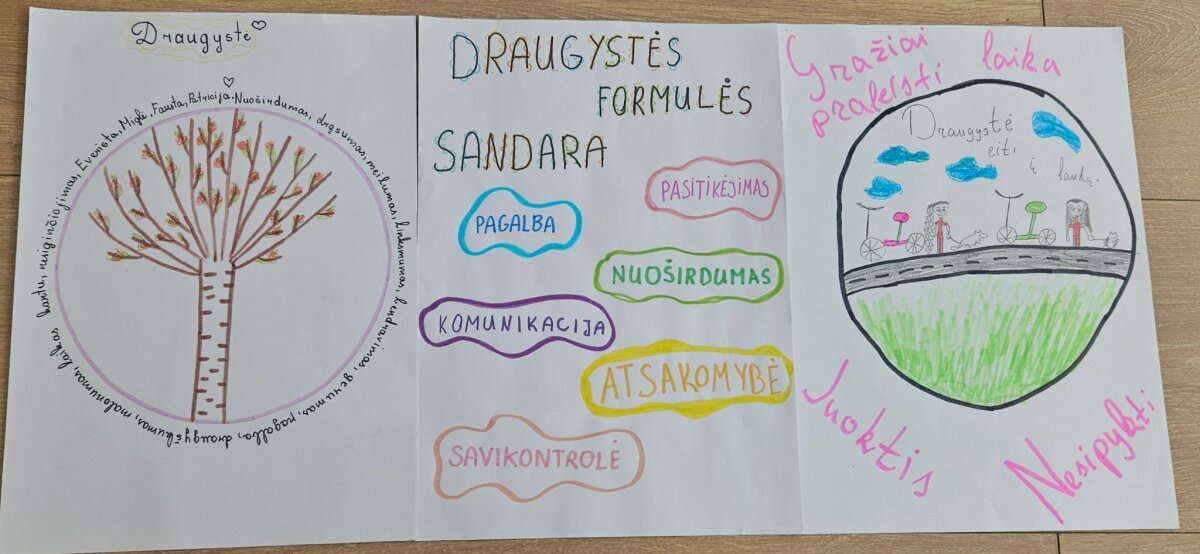 Draugystė
Everista, Miglė, Fausta, Patricija. Nuoširdumas, drąsumas, meilumas, linksmumas, bendravimas, gerumas, pagalba, draugyškumas, malonumas, laikas kartu, nesiginčiojimas,
DRAUGYSTĖS
FORMULĖS
SANDARA
PASITIKĖJIMAS
PAGALBA
NUOŠIRDUMAS
KOMUNIKACIJA
ATSAKOMYBĖ
SAVIKONTROLĖ
Gražiai laika
praleisti
Draugystė
eiti
į lauką.
Juoktis
Nesipykti